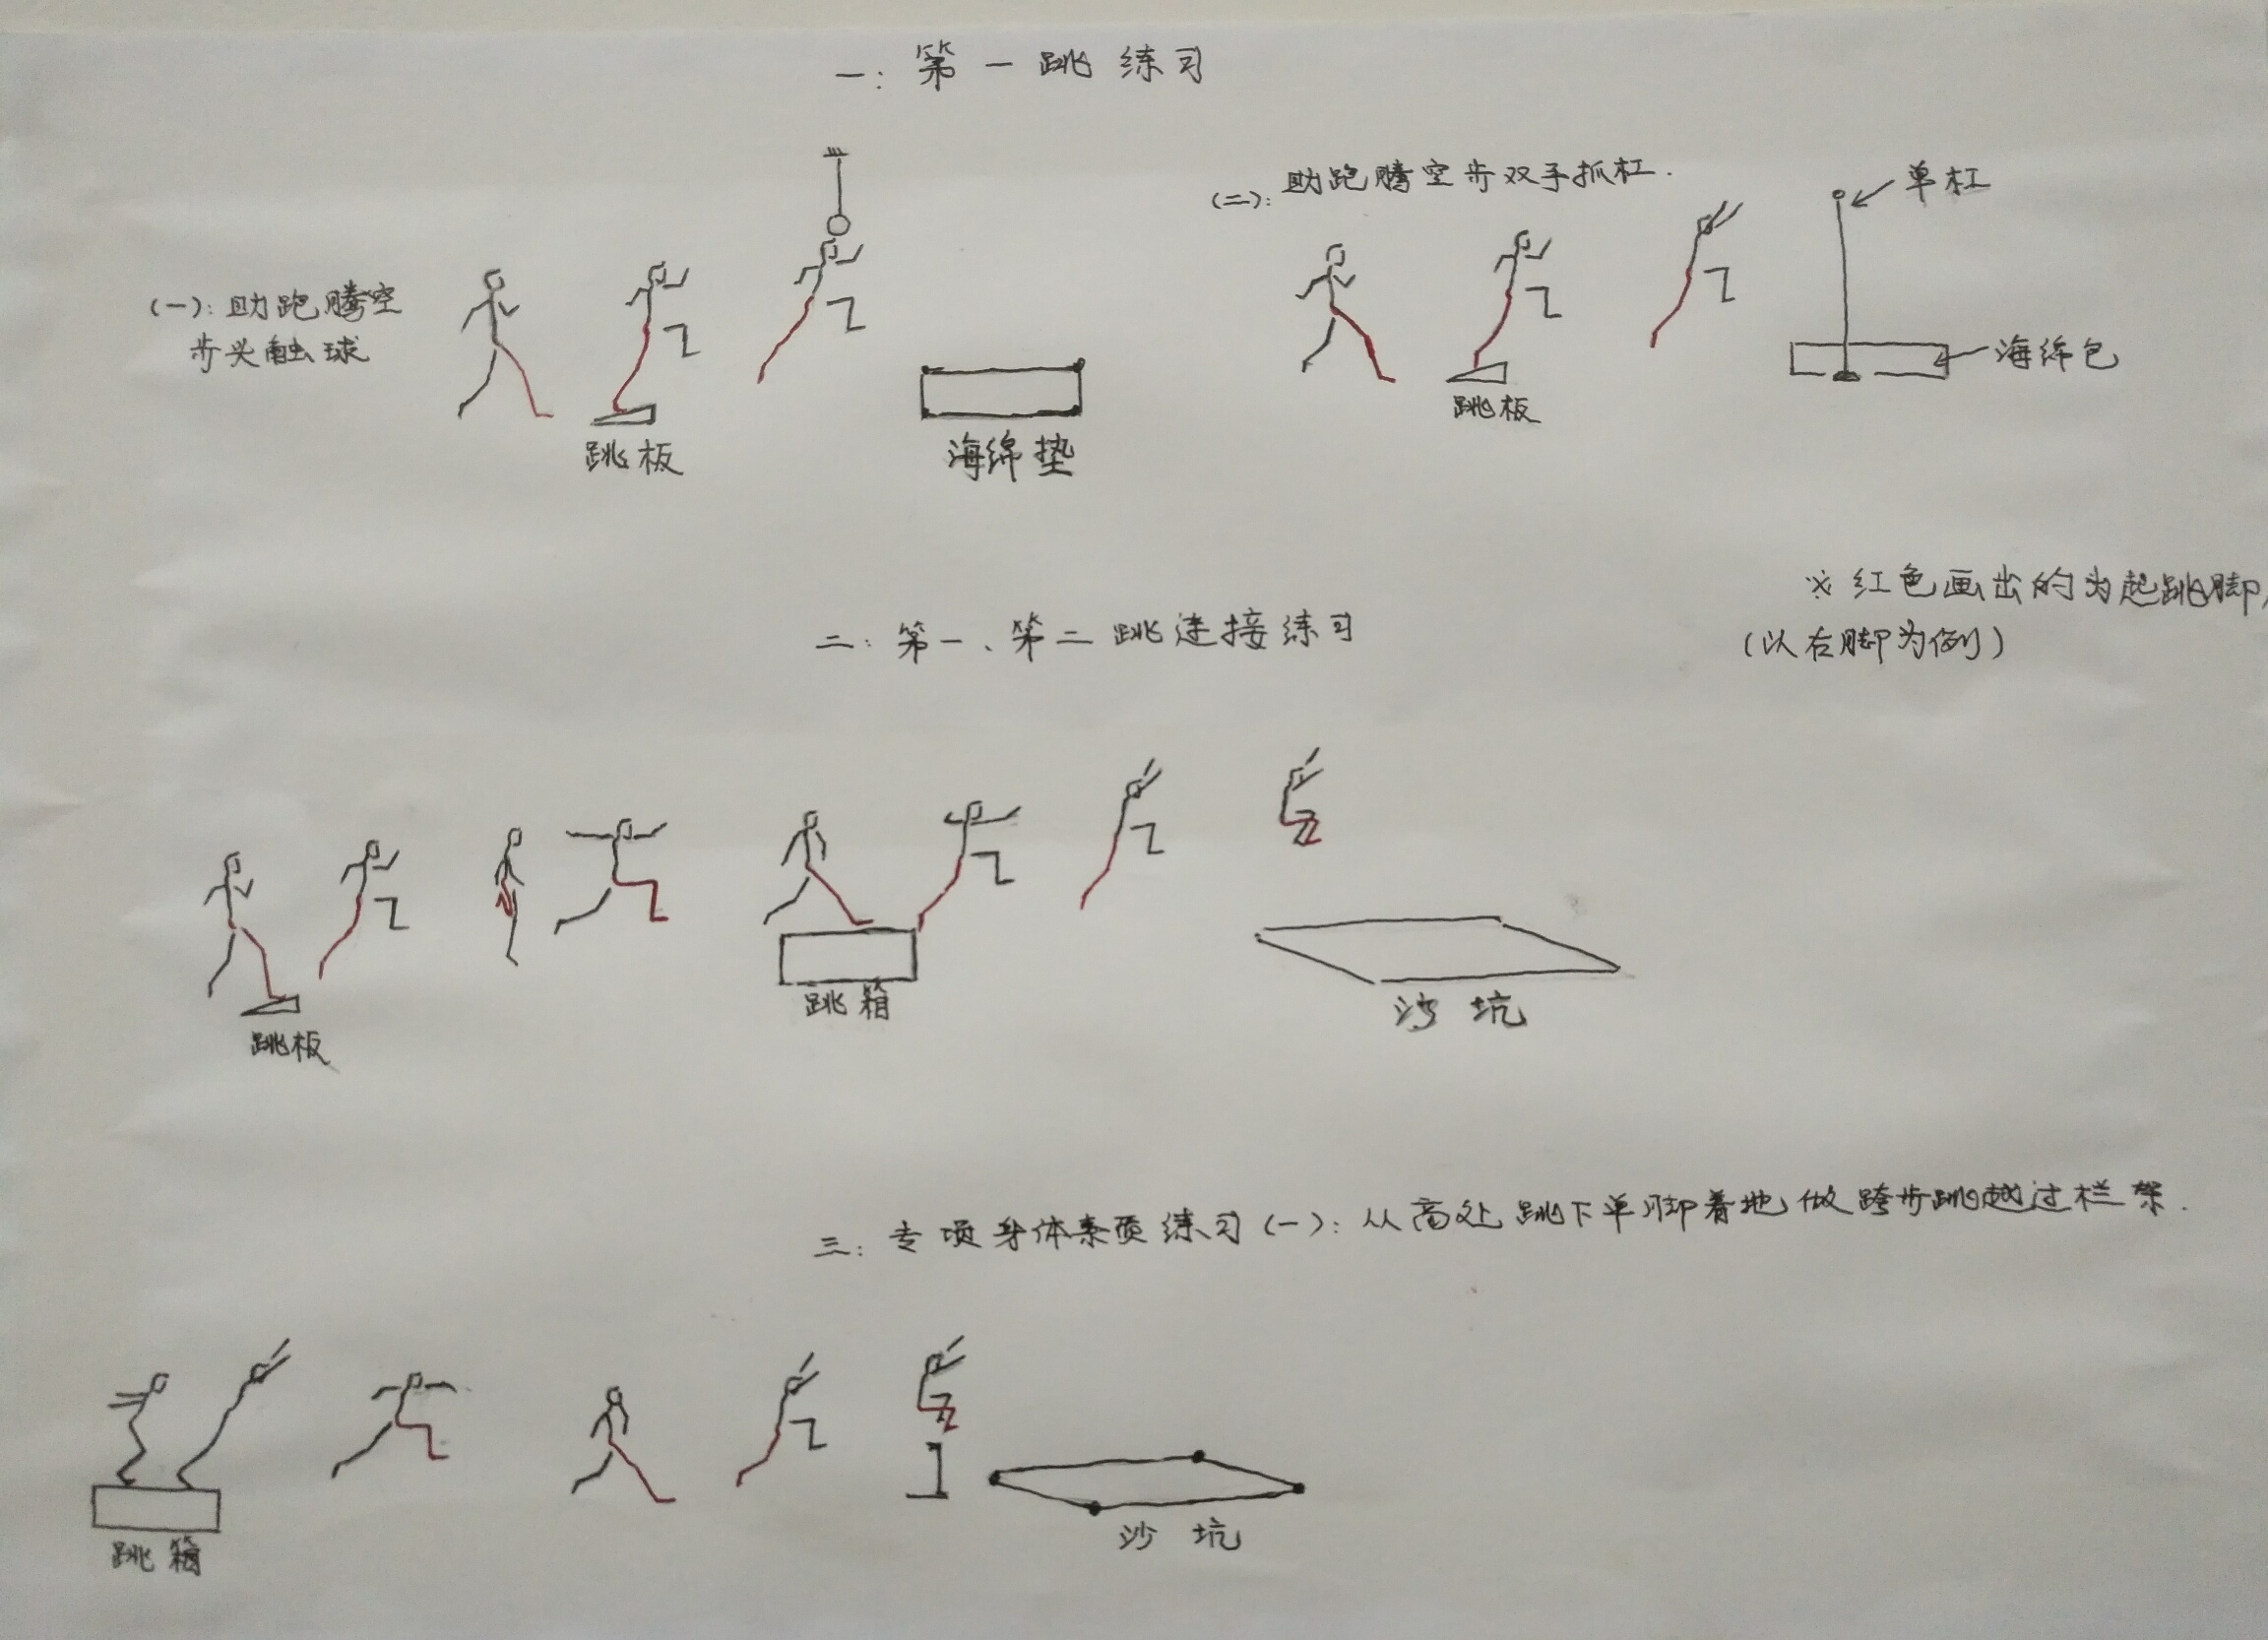 一：第一跳练习
(一)：助跑腾空
步头触球
跳板
海绵垫
(二)：助跑腾空步双手抓杠.
单杠
海绵包
跳板
※红色画出的为起跳脚,
(以右脚为例)
二：第一、第二跳连接练习
跳板
跳箱
沙坑
三：专项身体素质练习(一)：从高处跳下单脚着地做跨步跳越过栏架.
跳箱
沙坑